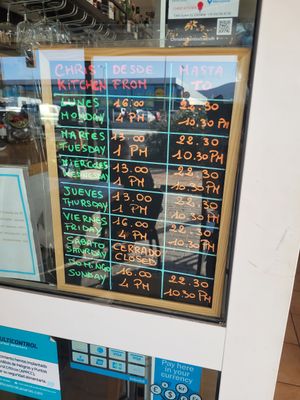 CHRIS DESDE HASTA
KITCHEN FROM TO
LUNES 16.00 22.30
MONDAY 4 PM 10.30 PM
MARTES 13.00 22.30
TUESDAY 1 PM 10.30 PM
MIERCOLES 13.00 22.30
WEDNESDAY 1 PM 10.30 PM
JUEVES 13.00 22.30
THURSDAY 1 PM 10.30 PM
VIERNES 16.00 22.30
FRIDAY 4 PM 10.30 PM
SABATO CERRADO
SATURDAY CLOSED
DOMINGO 16.00 22.30
SUNDAY 4 PM 10.30 PM
MULTICONTROL
Pay here
in your
currency